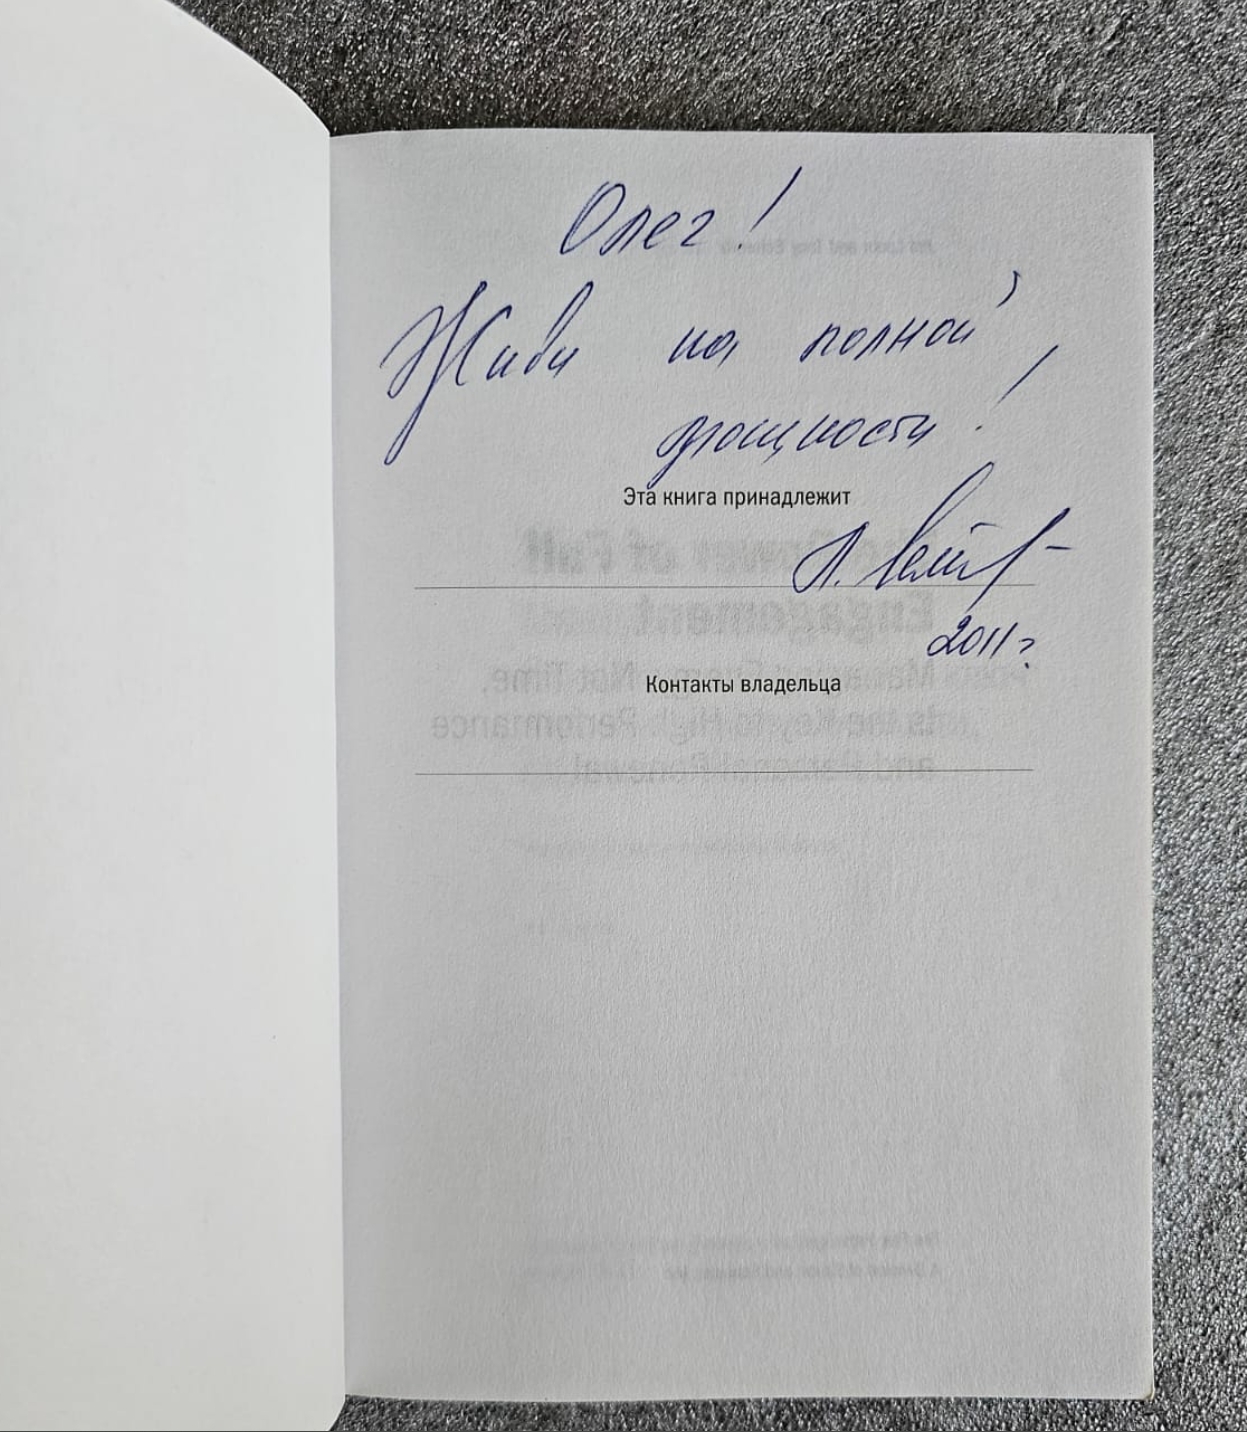 Олег!
Живи на полной
мощности!
Эта книга принадлежит
Л.
2011г
Контакты владельца